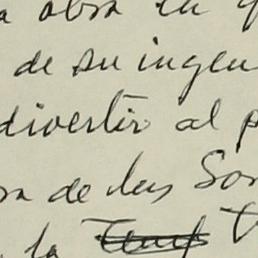 obra en
de su ingen
divertir al p
de las Son
la